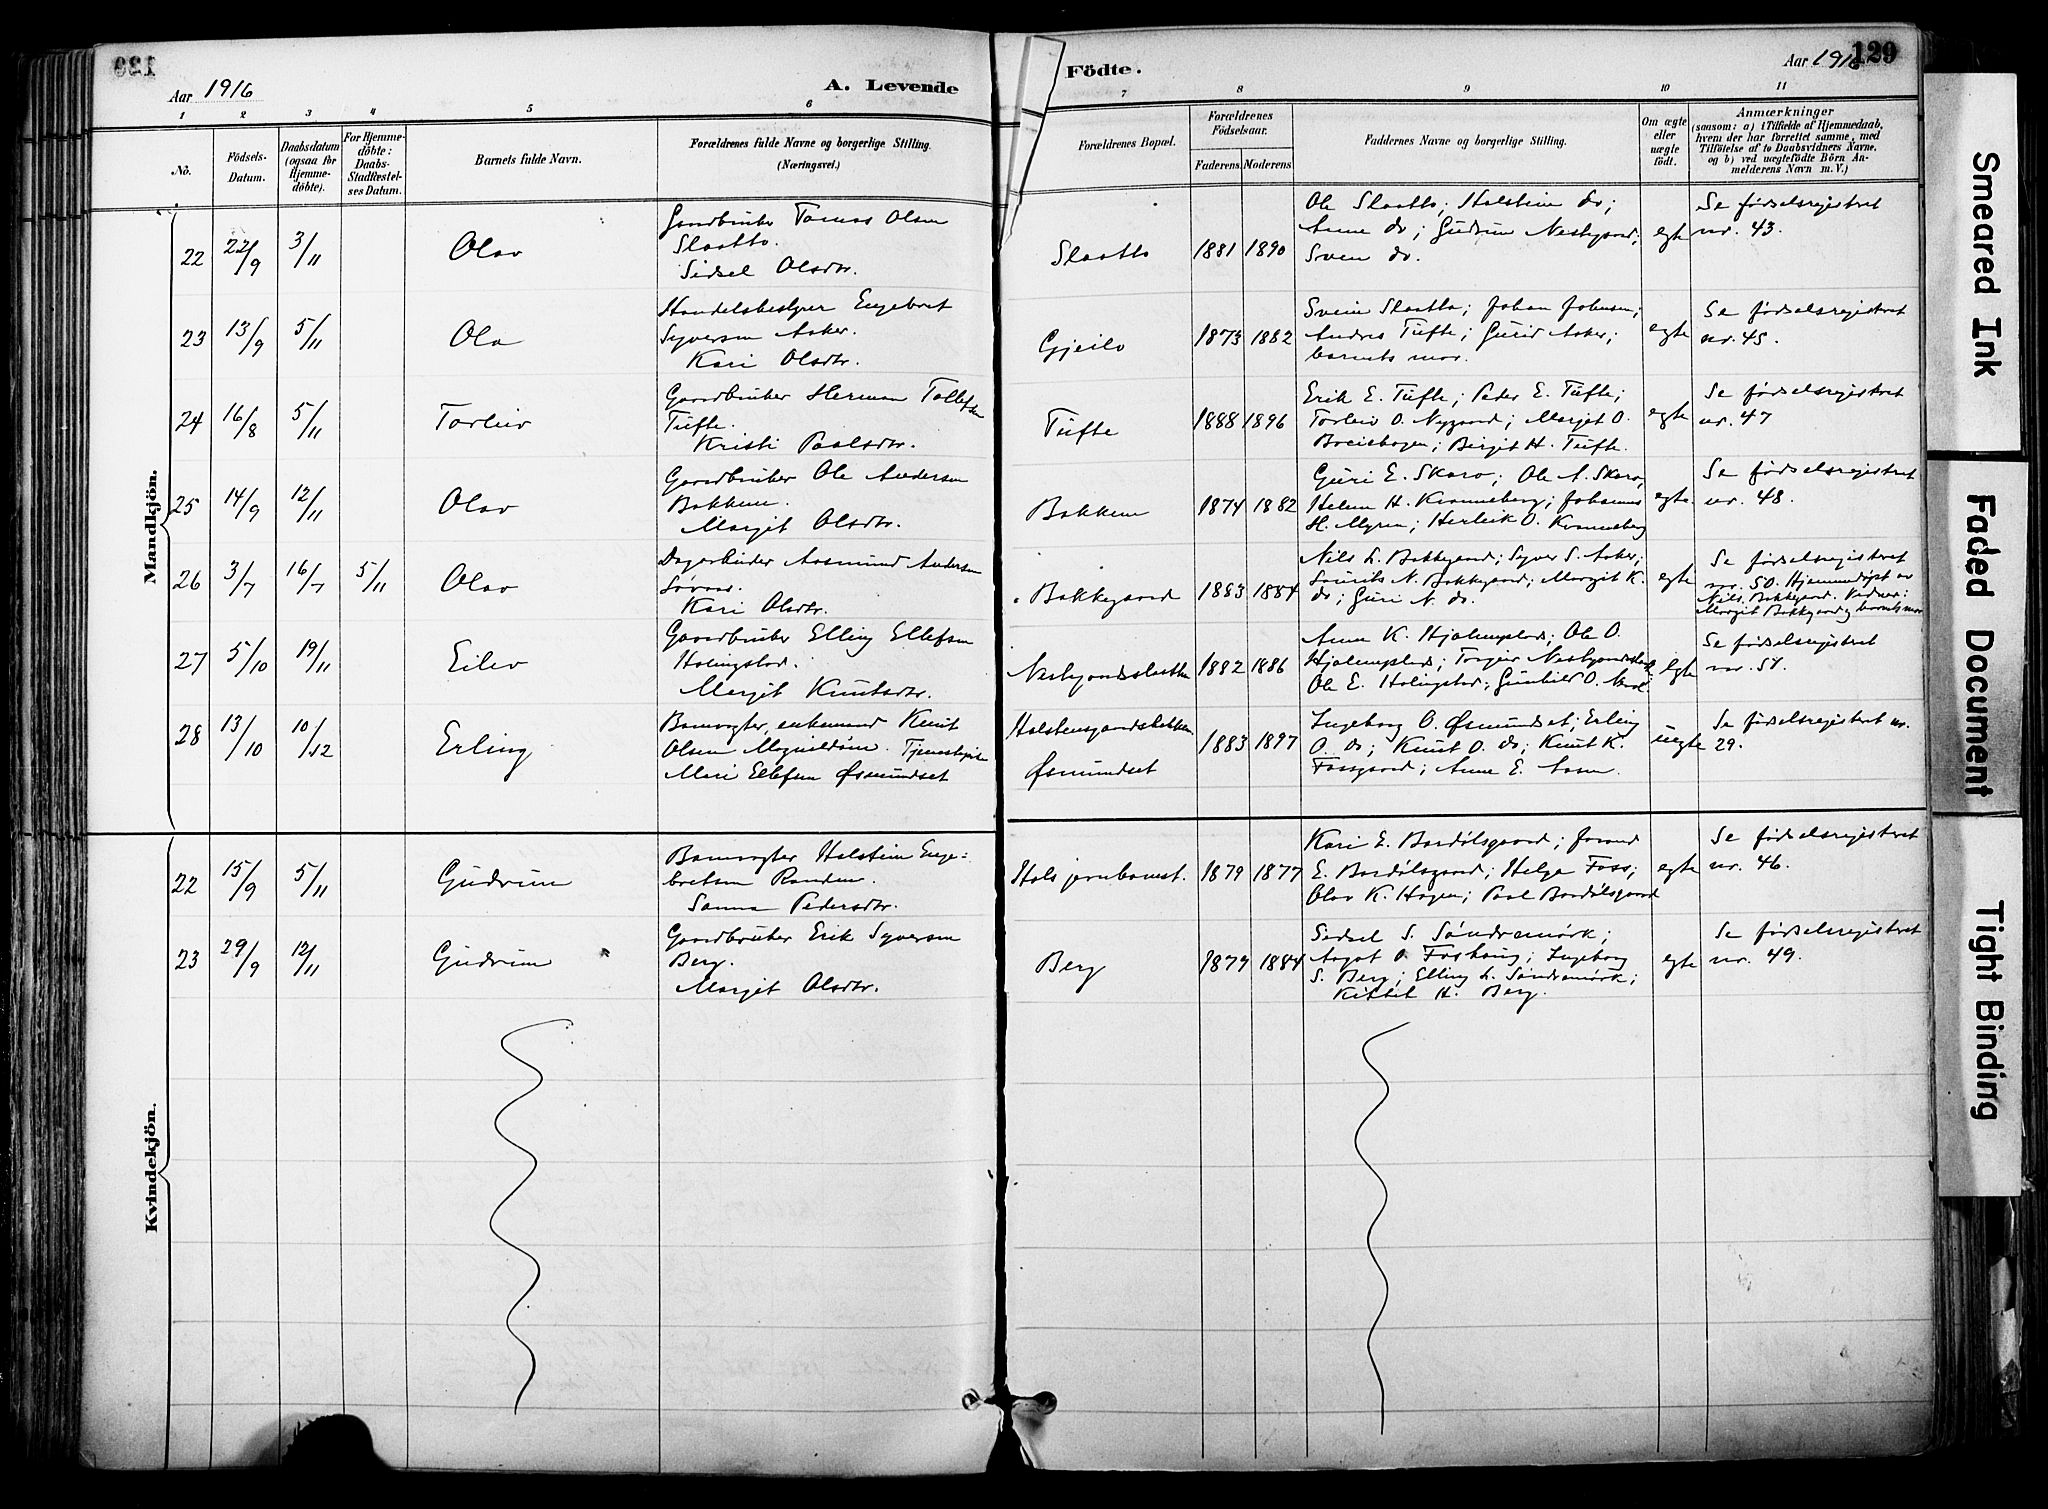 129
Aar 1916
A. Levende
Födte.
Aar 1916 129
1 2 3 4 5 6 7 8 9 10 11
No.
Födsels-Datum.
Daabsdatum (ogsaa for Hjemme-döbte).
For Hjemme-döbte: Daabs-Stadfæstel-ses Datum.
Barnets fulde Navn.
Forældrenes fulde Navne og borgerlige Stilling.
(Næringsvei.)
Forældrenes Bopæl.
Forældrenes Födselsaar.
Faderens Moderens
Faddernes Navne og borgerlige Stilling.
Om ægte eller uægte födt.
Anmærkninger
(saasom: a) i Tilfælde af Hjemmedaab, hvem der har forrettet samme, med Tilföielse af to Daabsvidners Navne, og b) ved uægtefödte Börn Anmelderens Navn m. V.)
Mandkjön.
22 22/9 3/11 Olav
Gaardbruker Tomas Olsen
Slaatto.
Sidsel Olsdtr.
Slaatto 1881 1890
Ole Slaatto; Halstein do;
Anne do; Gudrun Nesbgaard;
Svein do.
egte
Se fødselsregistret
nr. 43.
23 13/9 5/11 Ola
Handelsbestyrer Engebret
Syversen Aaker.
Kari Olsdtr.
Gjeilo 1873 1882
Svein Slaatto; Johan Johnsen;
Andres Tufte; Gurid Aaker;
barnets mor.
egte
Se fødselsregistret
nr. 45.
24 16/8 5/11 Torleiv
Gaardbruker Herman Tollefsen
Tufte.
Kristi Paalsdtr.
Tufte 1888 1896
Erik E. Tufte; Peder E. Tufte;
Torleiv O. Nygaard; Margit O.
Breiehagen; Birgit H. Tufte.
egte
Se fødselsregistret
nr. 47
25 14/9 12/11 Olav
Gaardbruker Ole Andersen
Bakken.
Margit Olsdtr.
Bakken 1874 1882
Guri E. Skaro; Ole A. Skaro;
Helen H. Kranneberg; Johannes
H. Myren; Herleik O. Kranneberg
egte
Se fødselsregistret
nr. 48.
26 3/7 16/7 5/11 Olav
Dagarbeider Aasmund Andersen
Kari Olsdtr.
Bakkegaard 1883 1884
Nils L. Bakkegaard; Syver S. Aaker;
Laurits N. Bakkegaard; Margit K.
do; Guri N. do.
egte
Se fødselsregistret
nr. 50. Hjemmedøpt av
Nils Bakkegaard. Vidner:
Margit Bakkegaard og barnets mor
27 5/10 19/11 Eilev
Gaardbruker Elling Ellefsen
Holingstad.
Margit Knutsdtr.
Nesbgaardsslatten 1882 1886
Anne K. Hjalmeplads; Ole O.
Hjalmeplads; Torgeir Nesbgaardsslatt
Ole E. Holingstad; Gunhild O.
egte
Se fødselsregistret
nr. 51.
28 13/10 10/12 Erling
Banevogter, enkemand Knut
Olsen Tjenestepike
Mari Ellefsen Øsmundset
Holstensgaardslatten
Øsmundset
1883 1897
Ingeborg O. Øsmundset; Erling
O. do; Knut O. do; Knut K.
Fossgaard; Anne E. Aasen.
uegte
Se fødselsregistret nr.
29.
Kvindekjön.
22 15/9 5/11 Gudrun
Banevogter Halstein Enge-
bretsen Randen.
Sanna Pedersdtr.
Hols jernbanest. 1879 1877
Kari E. Bardølsgaard; Jorand
E. Bardølsgaard; Helge Foss;
Olav K. Hagen; Paal Bardølsgaard
egte
Se fødselsregistret
nr. 46.
23 29/9 12/11 Gudrun
Gaardbruker Erik Syversen
Berg.
Margit Olsdtr.
Berg 1879 1884
Sidsel S. Søndremørk;
Aagot O. Foshaug; Ingeborg
S. Berg; Elling L. Søndremørk;
Kittel H. Berg.
egte
Se fødselsregistret
nr. 49.
Smeared Ink
Faded Document
Tight Binding